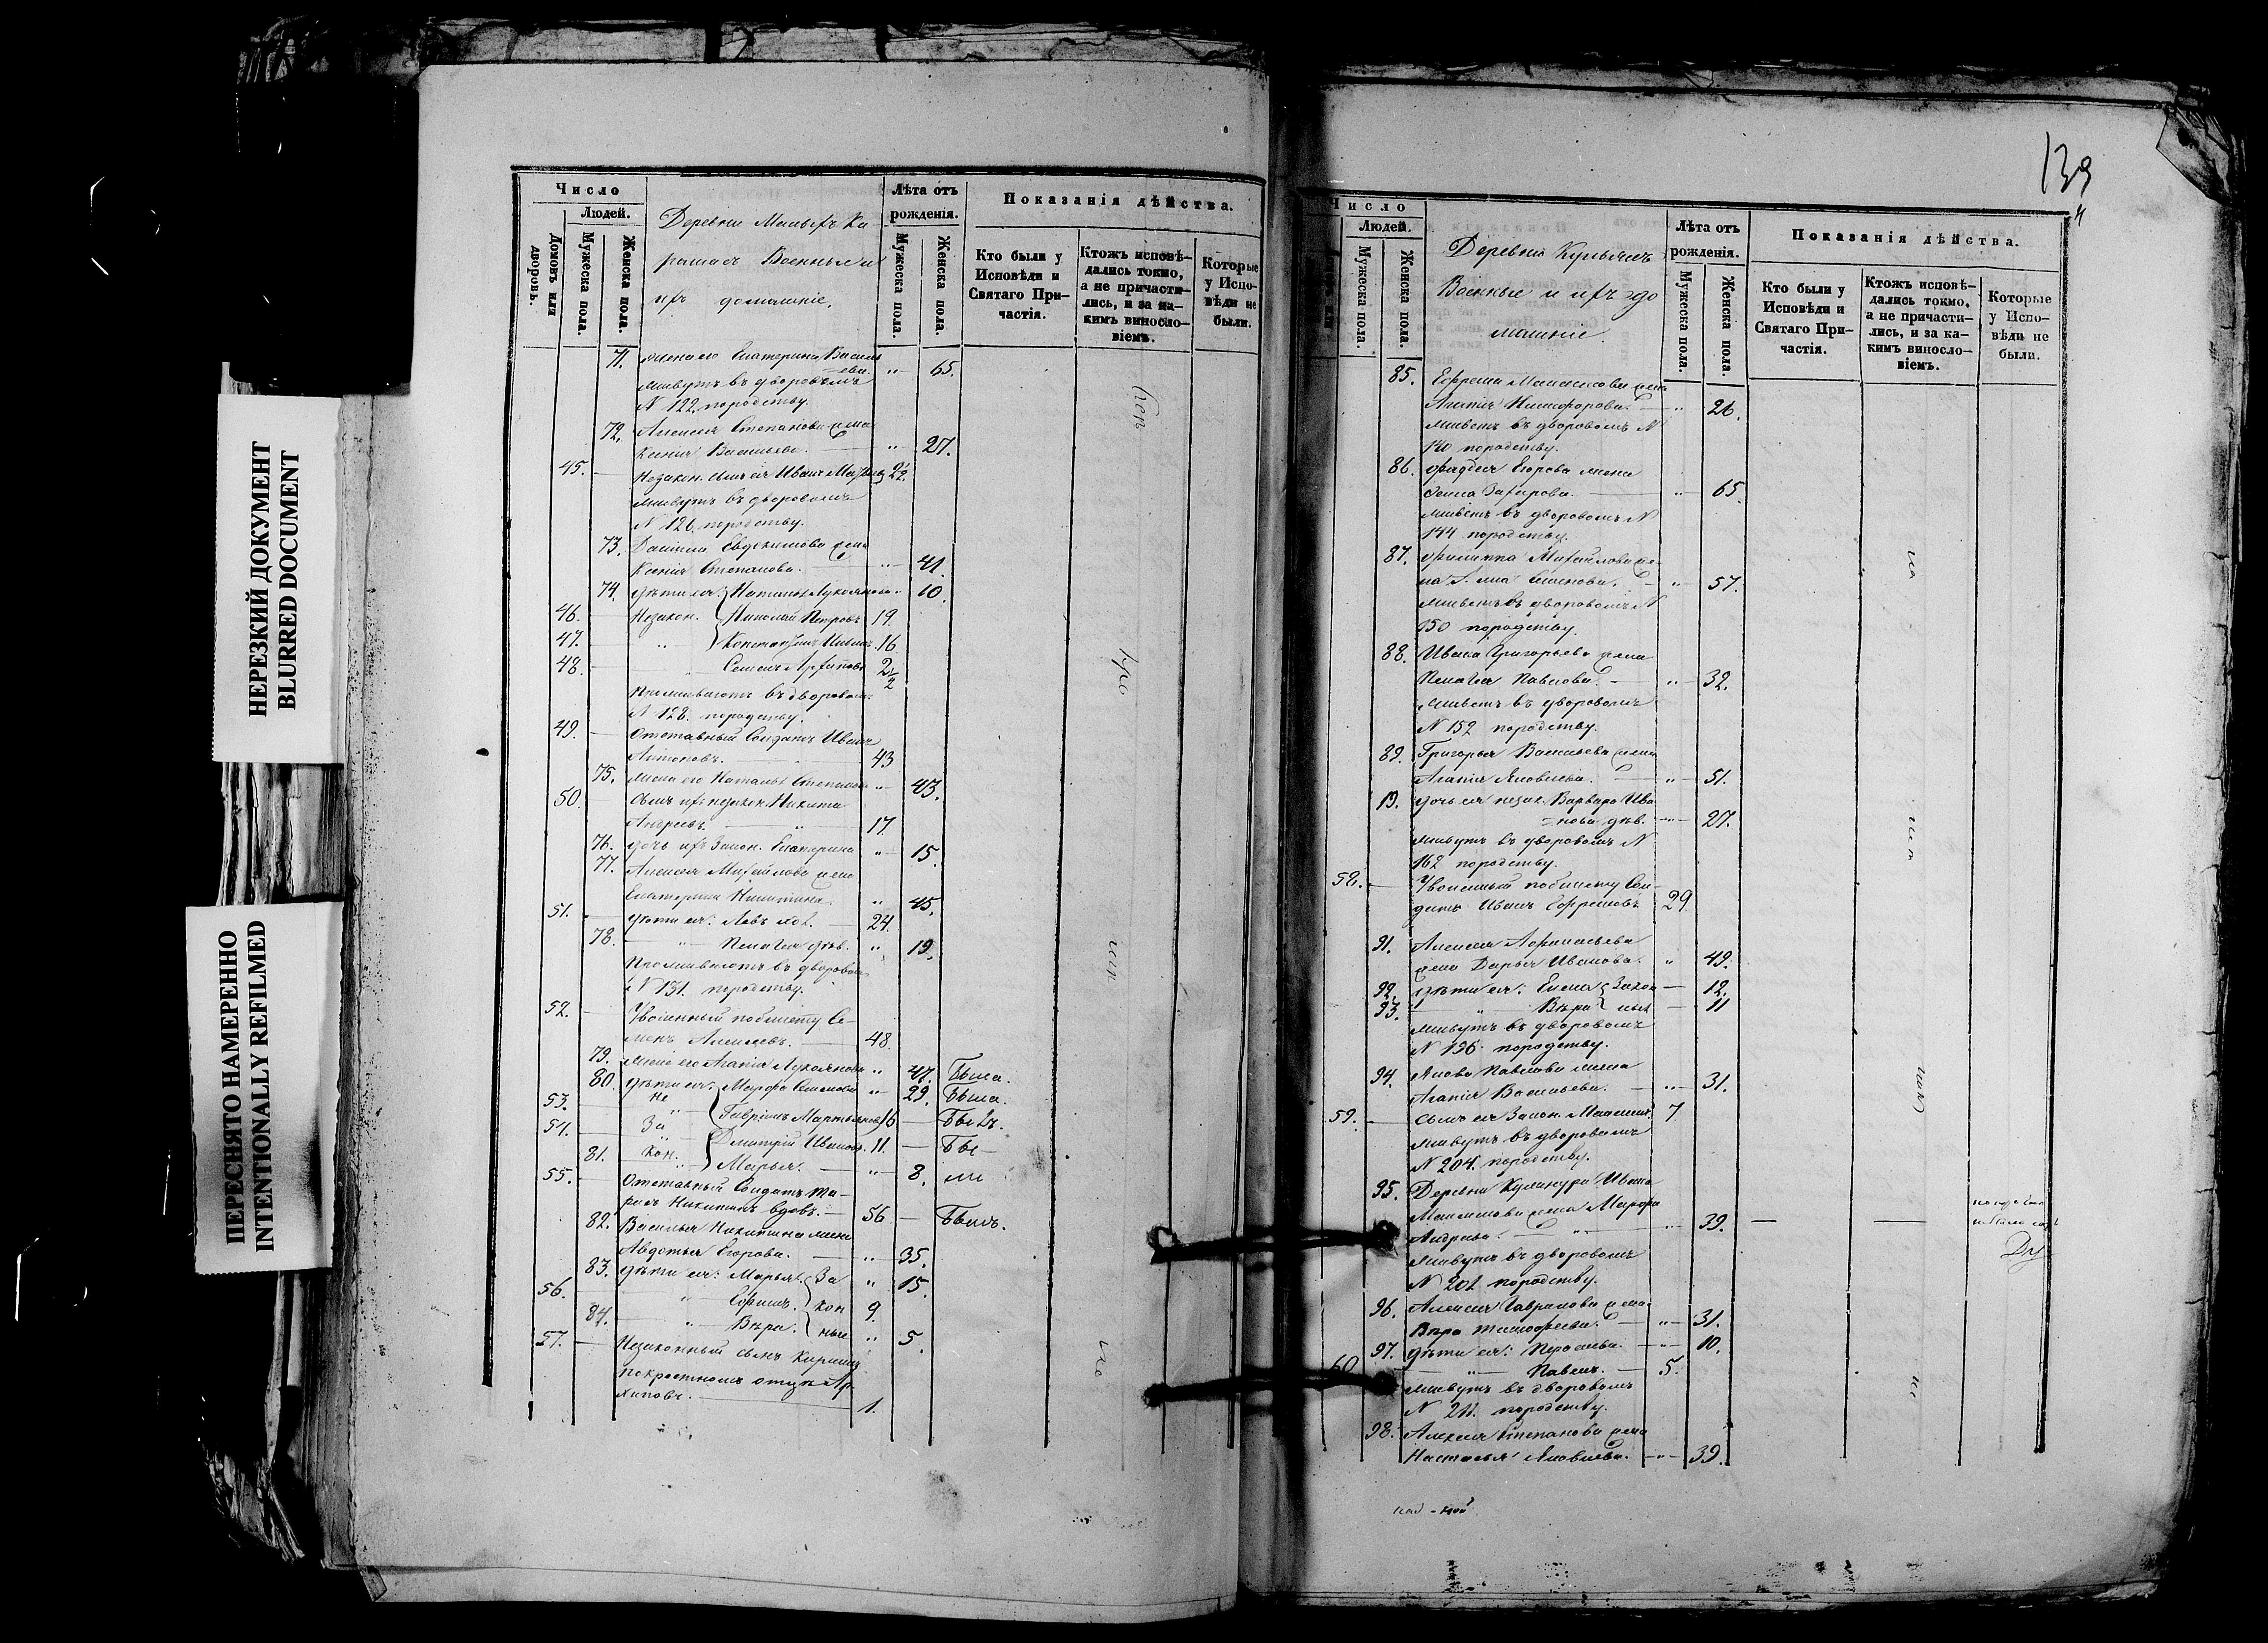 НЕРЕЗКИЙ ДОКУМЕНТ
BLURRED DOCUMENT
ПЕРЕСНЯТО НАМЕРЕННО
INTENTIONALLY REFILMED
Число
Людей.
Домовъ или дворовъ.
Мужеска пола.
Женска пола.
Деревни
Военные и
ихъ домашніе.
Лѣта отъ рожденія.
Мужеска пола.
Женска пола.
Показанія дѣйства.
Кто были у Исповѣди и Святаго Причастія.
Ктожъ исповѣдались токмо, а не причастились, и за какимъ винословіемъ.
Которые у Исповѣди не были.
71. жена его Екатерина Василь
ева. " 65.
живутъ въ дворовомъ
N 122. породству.
72. Алексея Степанова жена
Ксенія Васильева. " 27.
45. Незакон. сынъ ея Иванъ 2½
живутъ въ дворовомъ
N 126 породству.
73. Даніила Евдокимова жена
Ксенія Степанова. " 41.
74. дѣти ея: Наталья Лукоянова " 10.
46. Незакон. Николай Петровъ 19.
47. " Константинъ 16.
48. Семенъ Архиповъ 2½
Проживаютъ въ дворовомъ
N 128. породству.
49. Отставный Солдатъ Иванъ
Антоновъ. 43
75. Жена его Наталья Степанова " 43.
50. Сынъ ихъ незакон. Никита
Андреевъ. 17.
76. дочь ихъ Закон. Екатерина " 15.
77. Алексея Михайлова жена
Екатерина Никитина " 45.
51. дѣти ея: Левъ хол. 24.
78. " Пелагея дѣв. " 19.
Проживаютъ въ дворовомъ
N 131. породству.
52. Уволенный побилету Се-
менъ Алексеевъ. 48.
79. Жена его Агапія Лукоянова " 47. Была.
80. дѣти ея: Марфа Семенова " 29. Была.
53. не " Гавріилъ Мартыновъ 16 — Былъ.
54. за " Дмитрій Ивановъ. 11. — Бы-
81. кон. " Марья. " 8. ли
55. Отставный Солдатъ Та-
расъ Никитинъ вдовъ. 56 — Былъ.
82. Василья Никитина жена
Авдотья Егорова. " 35.
83. дѣти ея: Марья. За " 15.
56. " Ефремъ. кон 9.
84. " Вѣра. ные " 5.
57. Незаконный сынъ
покрестномъ отцѣ Ар-
хиповъ. 1.
139
Число
Людей.
Мужеска пола.
Женска пола.
Деревни
Военные и ихъ до
машніе.
Лѣта отъ рожденія.
Мужеска пола.
Женска пола.
Показанія дѣйства.
Кто были у Исповѣди и Святаго Причастія.
Ктожъ исповѣдались токмо, а не причастились, и за какимъ винословіемъ.
Которые у Исповѣди не были.
85. Ефрема жена
Агапія Никифорова. " 26.
живетъ въ дворовомъ N
140 породству.
86. Фаддея Егорова жена
Захарова. " 65
живетъ въ дворовомъ N
144 породству.
87. Филиппа Михайлова же-
на 57.
живетъ въ дворовомъ N
150 породству.
88. Ивана Григорьева жена
Пелагея Павлова. " 32.
живетъ въ дворовомъ
N 152 породству.
89. Григорья Васильева жена
Агапія Яковлева. " 51.
дочь ея незак. Варвара Ива
нова дѣв. " 27.
живутъ въ дворовомъ N
162 породству.
58. Уволенный побилету Сол-
датъ Иванъ Ефремовъ 29
91. Алексея Афанасьева
жена Дарья Иванова. " 49.
92. дѣти ея: Елена Закон — 12.
93. " Вѣра ныя — 11
живутъ въ дворовомъ
N 196 породству.
94. Якова Павлова жена
Агапія Васильева. " 31.
59. Сынъ ея Закон. Максимъ 7
живутъ въ дворовомъ
N 204. породству.
95. Деревни Ивана
Максимова жена Марфа
Андреева. " 39.
живутъ въ дворовомъ
N 201 породству.
96. Алексея Гаврилова жена
Вѣра Тимофеева. " 31.
97. дѣти ея: " 10.
60 " Павелъ. 5.
живутъ въ дворовомъ
N 211. породству.
98. Алексея Степанова жена
Настасья Яковлева. " 39.